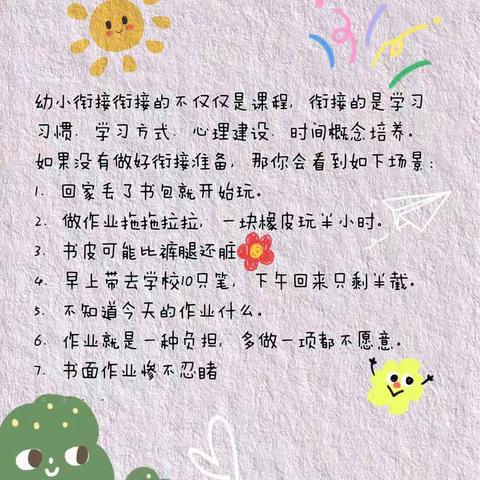 幼小衔接衔接的不仅仅是课程，衔接的是学习
习惯、学习方式、心理建设、时间概念培养。
如果没有做好衔接准备，那你会看到如下场景：
1. 回家丢了书包就开始玩。
2. 做作业拖拖拉拉，一块橡皮玩半小时。
3. 书皮可能比裤腿还脏
4. 早上带去学校10只笔，下午回来只剩半截。
5. 不知道今天的作业什么。
6. 作业就是一种负担，多做一项都不愿意。
7. 书面作业惨不忍睹